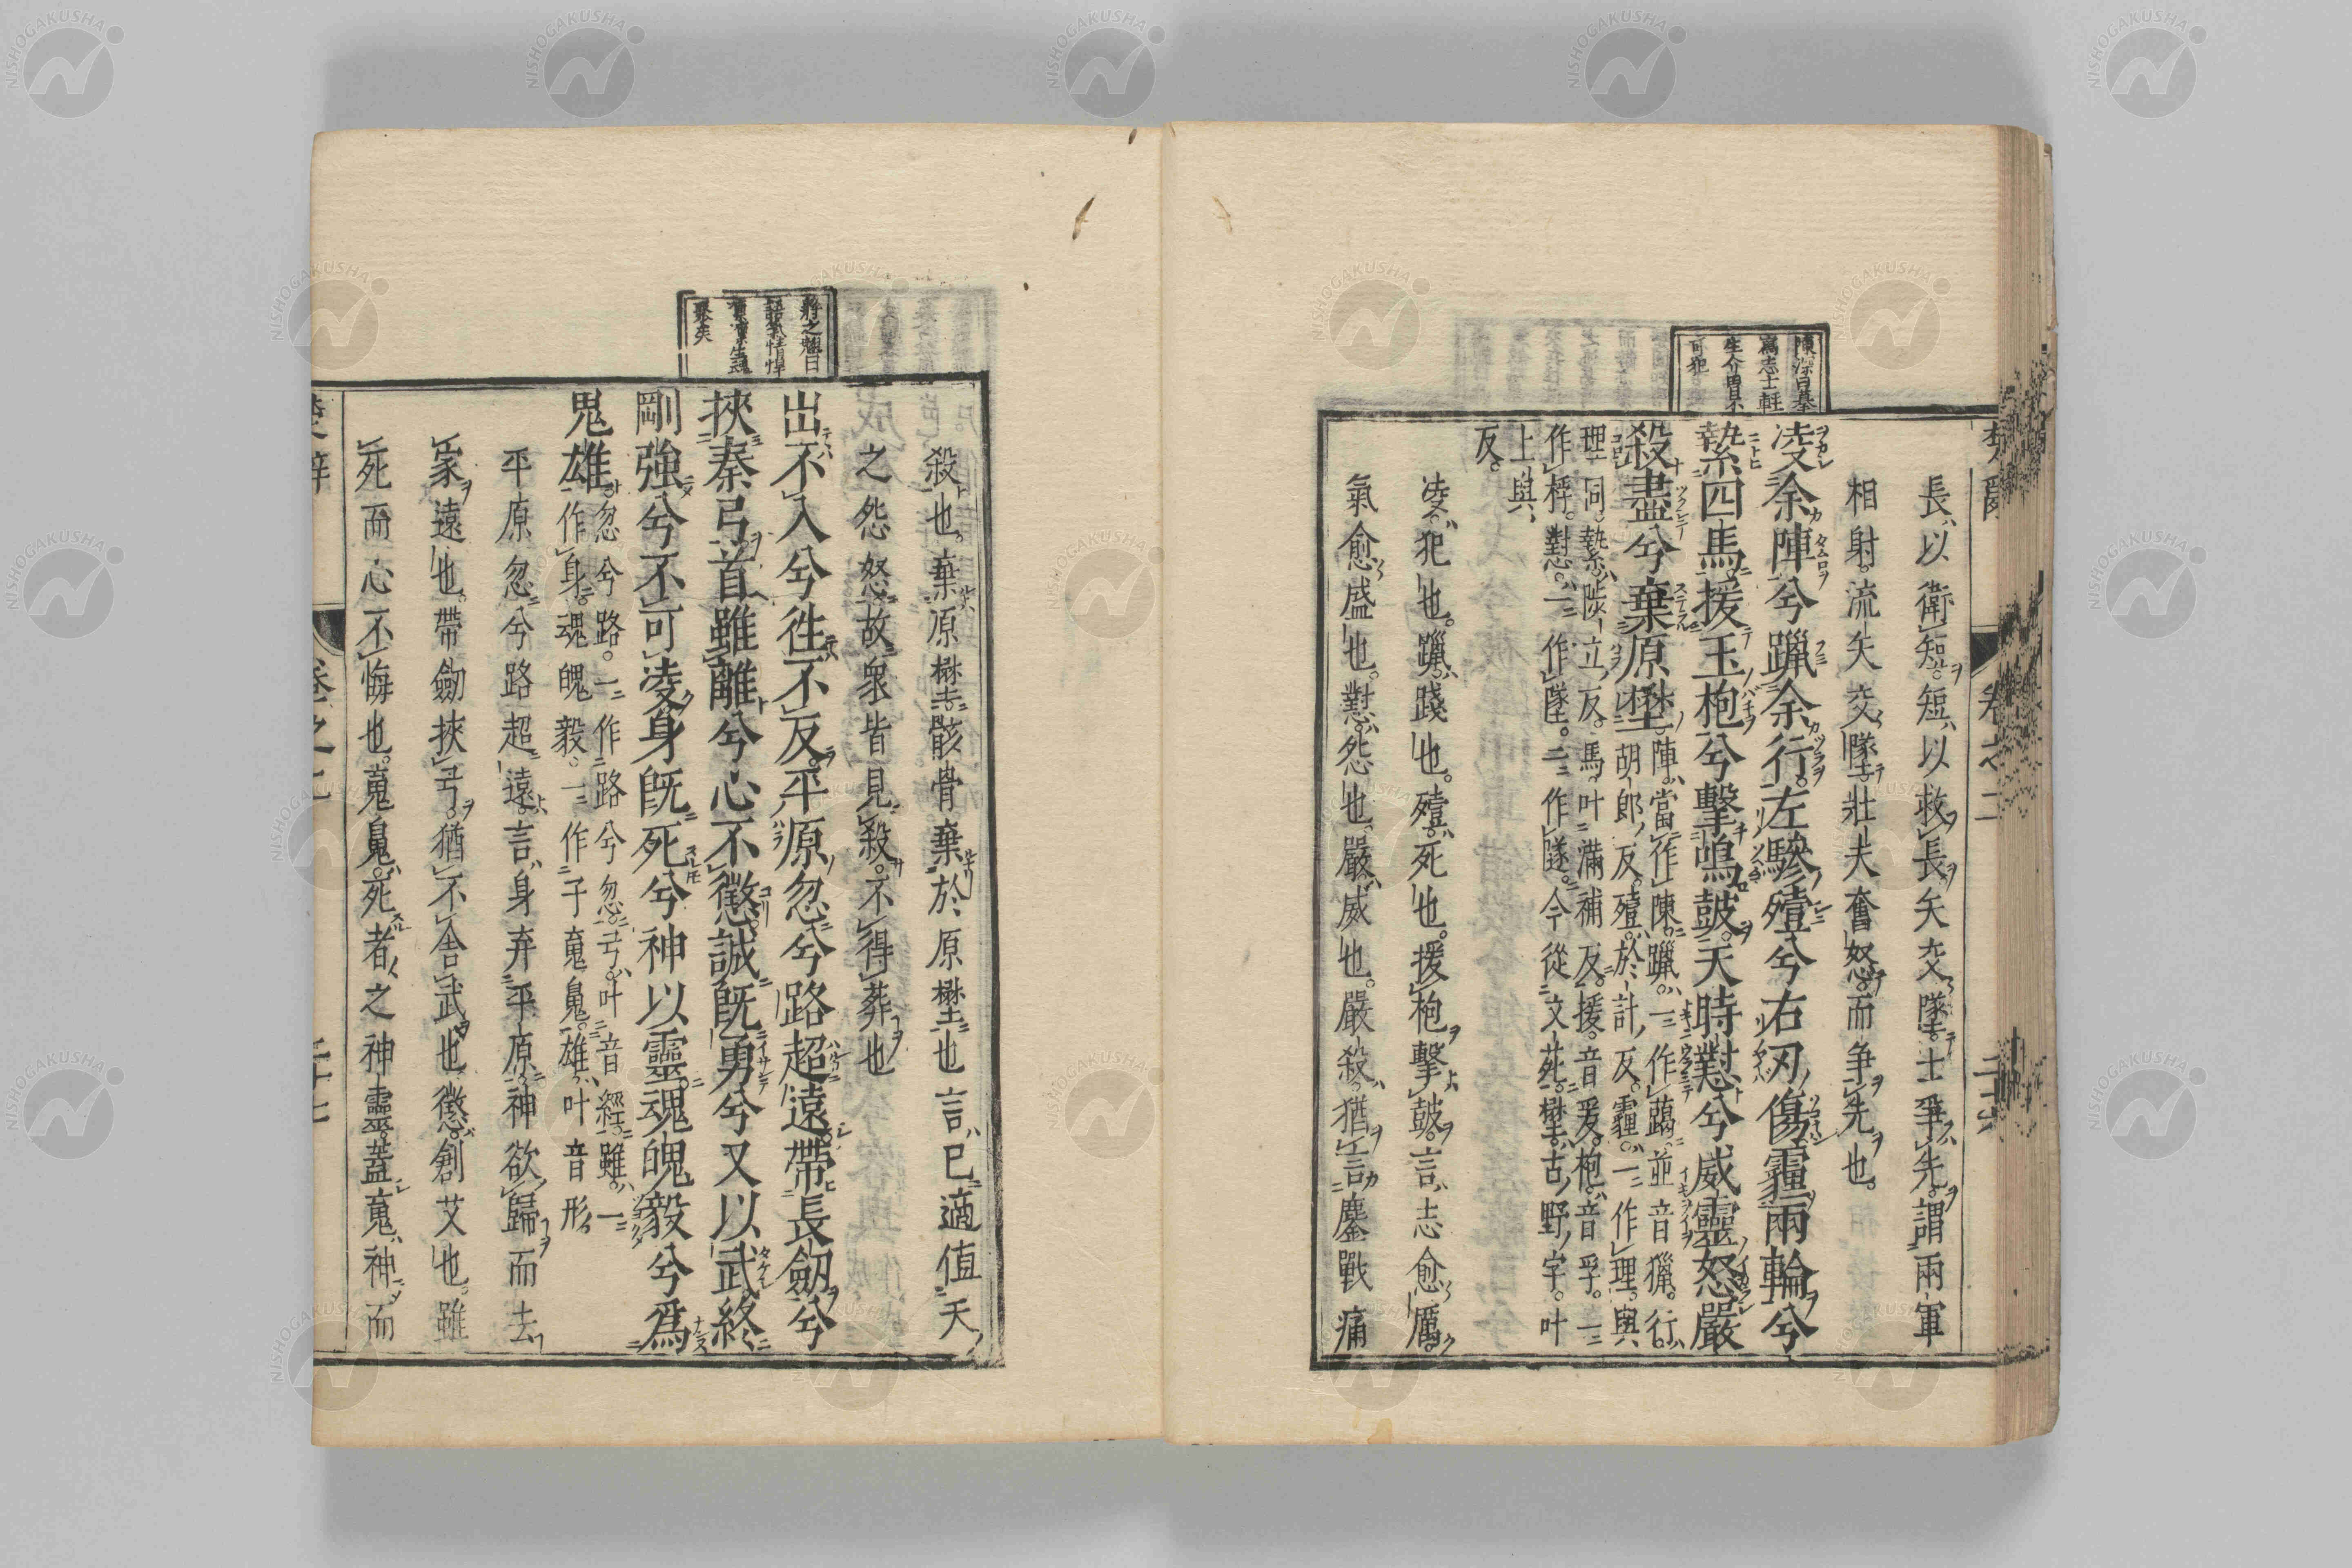 楚辭 卷之二 二十六
長以衛短短以救長矢交墜士爭先謂兩軍
相射流矢交墜壯夫奮怒而争先也
凌余陣兮躐余行左驂殪兮右刃傷霾兩輪兮
縶四馬援玉枹兮擊鳴鼓天時懟兮威靈怒嚴
殺盡兮棄原壄
陣當作陳躐一作躐並音獵行
胡郎反殪於計反霾一作理與
理同縶陟立反馬叶滿補反援音爰枹音孚一
作桴懟一作墜二作隧今從文苑壄古野字叶
上與
反
凌犯也躐踐也殪死也援枹擊鼓言志愈厲
氣愈盛也懟怨也嚴威也嚴殺猶言鏖戰痛
爲志士輕
生介冑不
可犯
殺也棄原壄骸骨棄於原壄也言已適值天
之怨怒故衆皆見殺不得葬也
出不入兮徃不反平原忽兮路超遠帶長劒兮
挾秦弓首雖離兮心不懲誠既勇兮又以武終
剛強兮不可凌身既死兮神以靈魂魄毅兮爲
鬼雄
忽兮路一作路兮忽弓叶音經雖一
作身魂魄毅一作子䰟鬼雄叶音形
平原忽兮路超遠言身弃平原神欲歸而去
家遠也帶劒挾弓猶不舍武也懲創艾也雖
死而心不悔也䰟鬼死者之神靈蓋䰟神而
將之魁曰
語氣情悍
聚矣
楚辭 卷之二 二十七